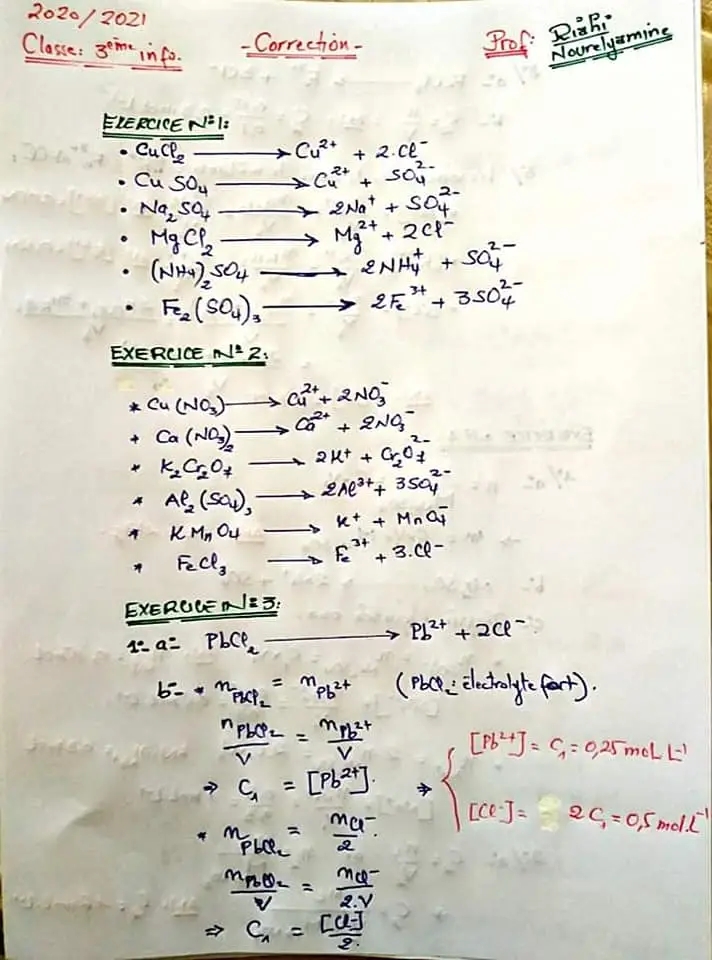 2020/2021
Classe: 3ème info. - Correction - Prof: Riahi Nourelyamine
EXERCICE N°1:
• CuCl₂ ⟶ Cu²⁺ + 2.Cl⁻
• CuSO₄ ⟶ Cu²⁺ + SO₄²⁻
• Na₂SO₄ ⟶ 2Na⁺ + SO₄²⁻
• MgCl₂ ⟶ Mg²⁺ + 2Cl⁻
• (NH₄)₂SO₄ ⟶ 2NH₄⁺ + SO₄²⁻
• Fe₂(SO₄)₃ ⟶ 2Fe³⁺ + 3SO₄²⁻
EXERCICE N°2:
* Cu(NO₃) ⟶ Cu²⁺ + 2NO₃⁻
+ Ca(NO₃)₂ ⟶ Ca²⁺ + 2NO₃⁻
* K₂Cr₂O₇ ⟶ 2K⁺ + Cr₂O₇²⁻
* Al₂(SO₄)₃ ⟶ 2Al³⁺ + 3SO₄²⁻
* KMnO₄ ⟶ K⁺ + MnO₄⁻
* FeCl₃ ⟶ Fe³⁺ + 3.Cl⁻
EXERCICE N°3:
1- a- PbCl₂ ⟶ Pb²⁺ + 2Cl⁻
b- * n PbCl₂ = n Pb²⁺ (PbCl₂: électrolyte fort).
n PbCl₂/V = n Pb²⁺/V
⇒ C₁ = [Pb²⁺]. ⇒ { [Pb²⁺] = C₁ = 0,25 mol.L⁻¹
[Cl⁻] = 2C₁ = 0,5 mol.L⁻¹
* n PbCl₂ = n Cl⁻/2
n PbCl₂/V = n Cl⁻/2.V
⇒ C₁ = [Cl⁻]/2.